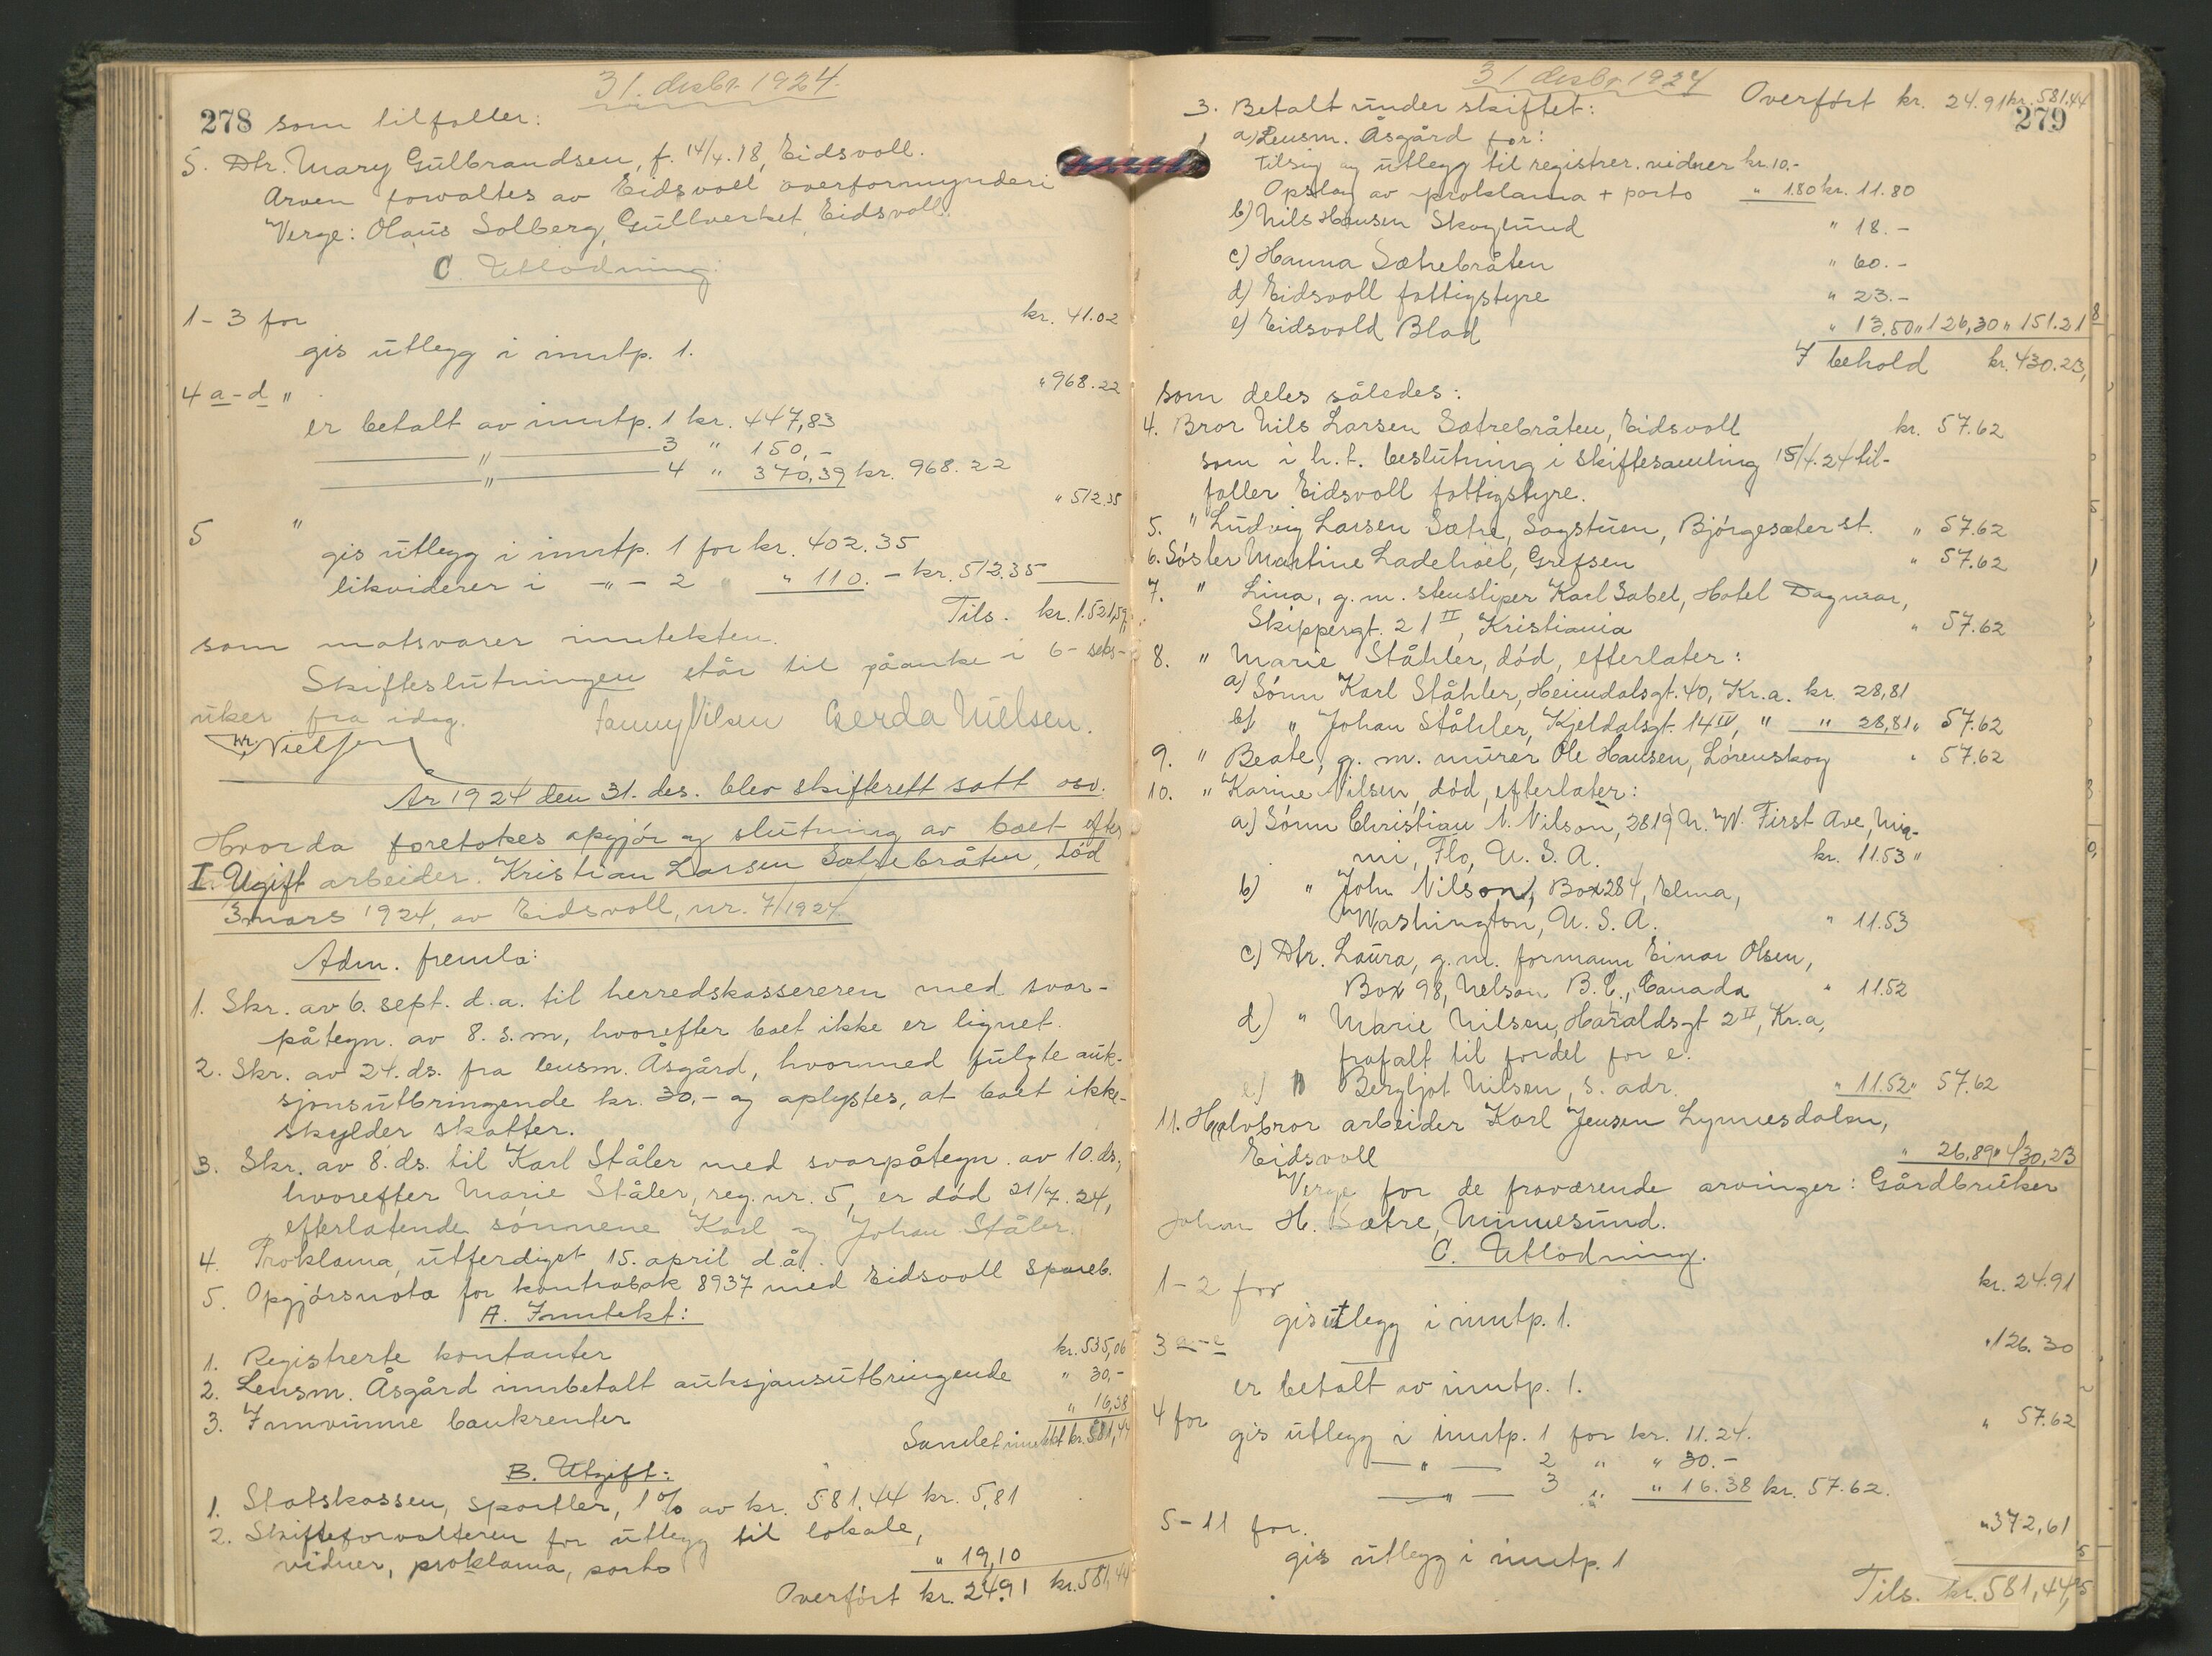 31. desbr. 1924.
278 som tilfaller:
5. Dtr. Mary Gulbrandsen, f. 14/4.18, Eidsvoll.
Arven forvaltes av Eidsvoll overformynderi
Verge: Olaus Solberg, Gullverket, Eidsvoll.
C. Utlodning:
1-3 for kr. 41.02
gis utlegg i inntp. 1.
4 a-d " " 968.22
er betalt av inntp. 1 kr. 447,83
—— " —— 3 " 150,-
—— " —— 4 " 370,39 kr. 968.22
5 " " 512.35
gis utlegg i inntp. 1 for kr. 402.35
likviderer i -"- 2 " " 110.- kr. 512.35
Tils. kr. 1.521,59
som motsvarer inntekten.
Skifteslutningen står til påanke i 6-seks-
uker fra idag. Fanny Nilsen Gerda Nielsen.
Wr. Nielsen
År 1924 den 31. des. blev skifterett satt osv.
Hvorda foretokes opgjør og slutning av boet efter
I Ugift arbeider Kristian Larsen Sætrebråten, død
3 mars 1924, av Eidsvoll, nr. 7/1924.
Adm. fremla:
1. Skr. av 6. sept. d.a. til herredskassereren med svar-
påtegn. av 8. s.m, hvorefter boet ikke er lignet.
2. Skr. av 24. ds. fra lensm. Åsgård, hvormed fulgte auk-
sjonsutbringende kr. 30,- og oplystes, at boet ikke
skylder skatter.
3. Skr. av 8. ds. til Karl Ståler med svarpåtegn. av 10. ds.,
hvorefter Marie Ståler, reg. nr. 5, er død 21/7.24,
efterlatende sønnene Karl og Johan Ståler.
4. Proklama, utferdiget 15. april d.å.
5. Opgjørsnota for kontrabok 8937 med Eidsvoll Spareb.
A. Inntekt:
1. Registrerte kontanter kr. 535,06
2. Lensm. Åsgård innbetalt auksjonsutbringende " 30,-
3. Innvunne bankrenter " 16,38
Samlet inntekt kr. 581,44
B. Utgift:
1. Statskassen, sportler, 1% av kr. 581.44 kr. 5,81
2. Skifteforvalteren for utlegg til lokale,
vidner, proklama, porto " 19,10
Overført kr. 24.91 kr. 581,44
31 desbr. 1924
Overført kr. 24.91 kr. 581.44
279
3. Betalt under skiftet:
a) Lensm. Åsgård for:
tilsig og utlegg til registrer. vidner kr. 10.-
Opslag av proklama + porto " 1.80 kr. 11.80
b) Nils Hansen Skoglund " 18.-
c) Hanna Sætrebråten " 60.-
d) Eidsvoll fattigstyre " 23.-
e) Eidsvold Blad " 13.50 " 126,30 " 151.21
I behold kr. 430.23,
som deles således:
4. Bror Nils Larsen Sætrebråten, Eidsvoll kr. 57.62
som i h.t. beslutning i skiftesamling 15/4.24 til-
faller Eidsvoll fattigstyre.
5. " Ludvig Larsen Sætre, Sagstuen, Bjørgesæter st. " 57.62
6. Søster Martine Ladehoel, Grefsen " 57.62
7. " Lina, g.m. stensliper Karl Sabel, Hotel Dagmar,
Skippergt. 21 II, Kristiania " 57.62
8. " Marie Ståhler, død, efterlater:
a) Sønn Karl Ståhler, Heimdalsgt. 40, Kr.a. kr. 28,81
b) " Johan Ståhler, Kjeldalsgt. 14 IV, " " 28,81 " 57.62
9. " Beate, g.m. murer Ole Hansen, Lørenskog " 57.62
10. " Karine Nilsen, død, efterlater:
a) Sønn Christian N. Nilson, 2819 N. W. First Ave, Mia-
mi, Flo, U.S.A. kr. 11.53 "
b) " John Nilson, Box 284, Elma,
Washington, U.S.A. " 11.53
c) Dtr. Laura, g.m. formann Einar Olsen,
Box 98, Nelson B.C., Canada " 11.52
d) " Marie Nilsen, Haraldsgt 2 II, Kr.a,
frafalt til fordel for e.
e) " Bergljot Nilsen, s. adr. " 11.52 " 57.62
11. Halvbror arbeider Karl Jensen Lynnesdalen,
Eidsvoll " 26.89 " 430,23
Verge for de fraværende arvinger: Gårdbruker
Johan H. Sætre, Minnesund.
C. Utlodning.
1-2 for kr. 24.91
gis utlegg i inntp. 1.
3 a-e " 126.30
er betalt av inntp. 1.
4 for " 57.62
gis utlegg i inntp. 1 for kr. 11.24.
— " — 2 " " 30.-
— " — 3 " " 16.38 kr. 57.62.
5-11 for. " 372,61
gis utlegg i inntp. 1
Tils. kr. 581,44